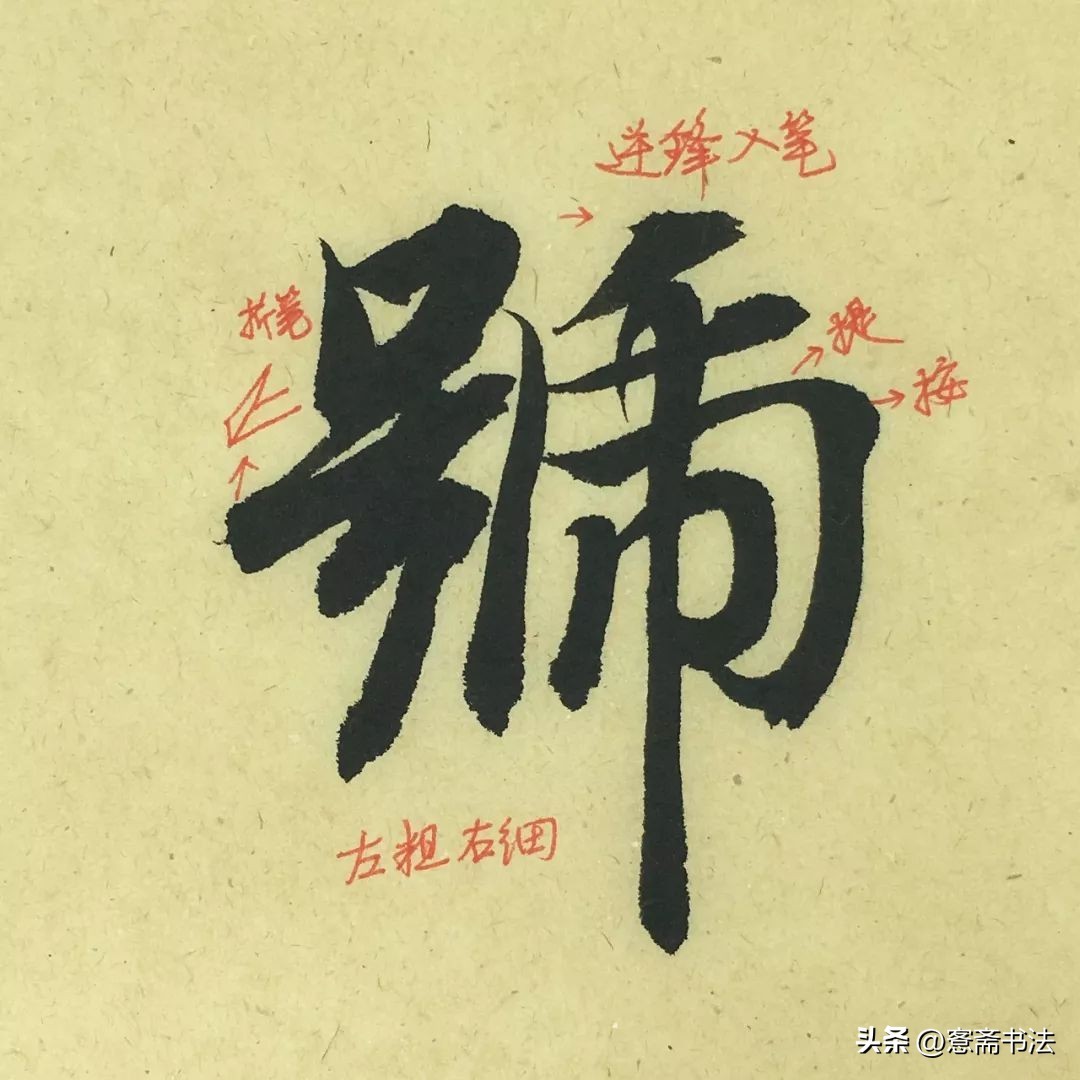 逆鋒入笔
折笔
提
按
號
左粗右细
头条@窓斋书法